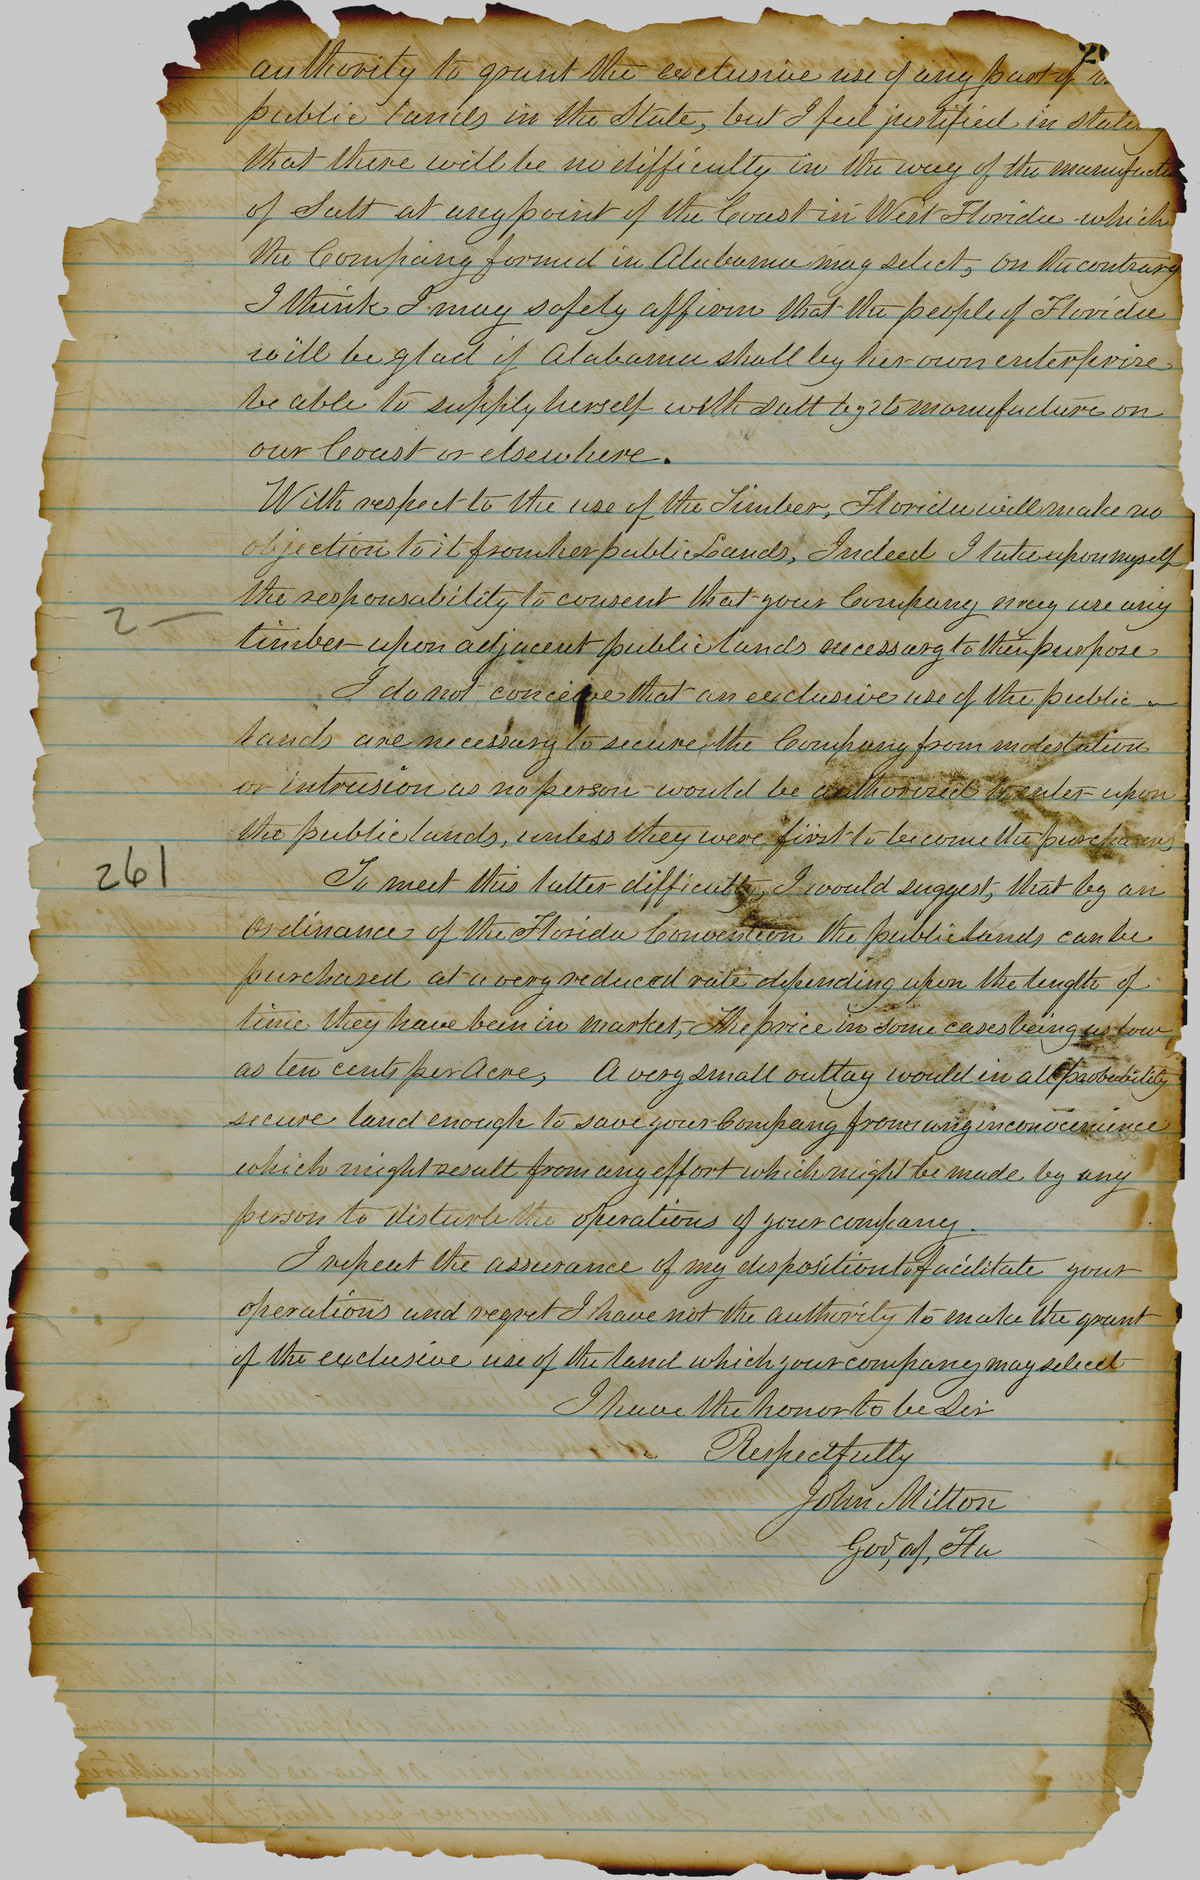 authority to grant the exclusive use of any part of
public lands in the State, but I feel justified in
that there will be no difficulty in the way of the
of Salt at any point of the Coast in West Florida which
the Company formed in Alabama may select, on the contrary
I think I may safely affirm that the people of Florida
will be glad if Alabama shall by her own enterprise
be able to supply herself with salt by its manufacture on
our Coast or elsewhere.
With respect to the use of the Timber, Florida will make no
objection to it from her public Lands, Indeed I take upon myself
2 —
the responsability to consent that your Company may use any
timber upon adjacent public lands necessary to their purpose
I do not conceive that an exclusive use of the public
lands are necessary to secure the Company from molestation
or intrusion as no person would be authorized to enter upon
the public lands, unless they were first to become the purchasers
261
To meet this latter difficulty, I would suggest, that by an
Ordinance of the Florida Convention the public lands can be
purchased at a very reduced rate depending upon the length of
time they have been in market, the price in some cases being as low
as ten cents per Acre, A very small outlay would in all probability
secure land enough to save your Company from any inconvenience
which might result from any effort which might be made by any
person to disturb the operations of your company.
I repeat the assurance of my disposition to facilitate your
operations and regret I have not the authority to make the grant
of the exclusive use of the land which your company may select
I have the honor to be Sir
Respectfully
John Milton
Gov, of, Fla